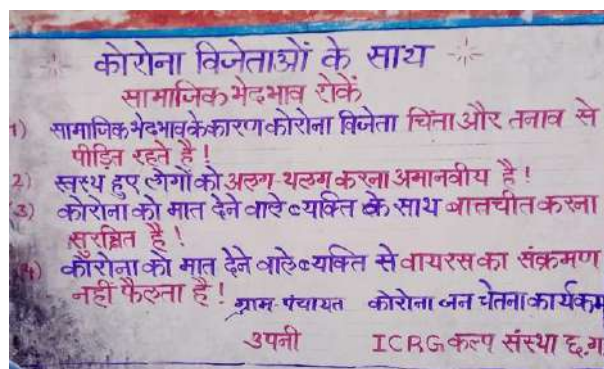 कोरोना विजेताओं के साथ
सामाजिक भेदभाव रोकें
1) सामाजिक भेदभाव के कारण कोरोना विजेता चिंता और तनाव से
पीड़ित रहते है !
2) स्वस्थ हुए लोगों को अलग-थलग करना अमानवीय है !
3) कोरोना को मात देने वाले व्यक्ति के साथ बातचीत करना
सुरक्षित है !
4) कोरोना को मात देने वाले व्यक्ति से वायरस का संक्रमण
नहीं फैलता है !
ग्राम-पंचायत कोरोना जन चेतना कार्यक्रम
उपनी ICRG कल्प संस्था छ.ग